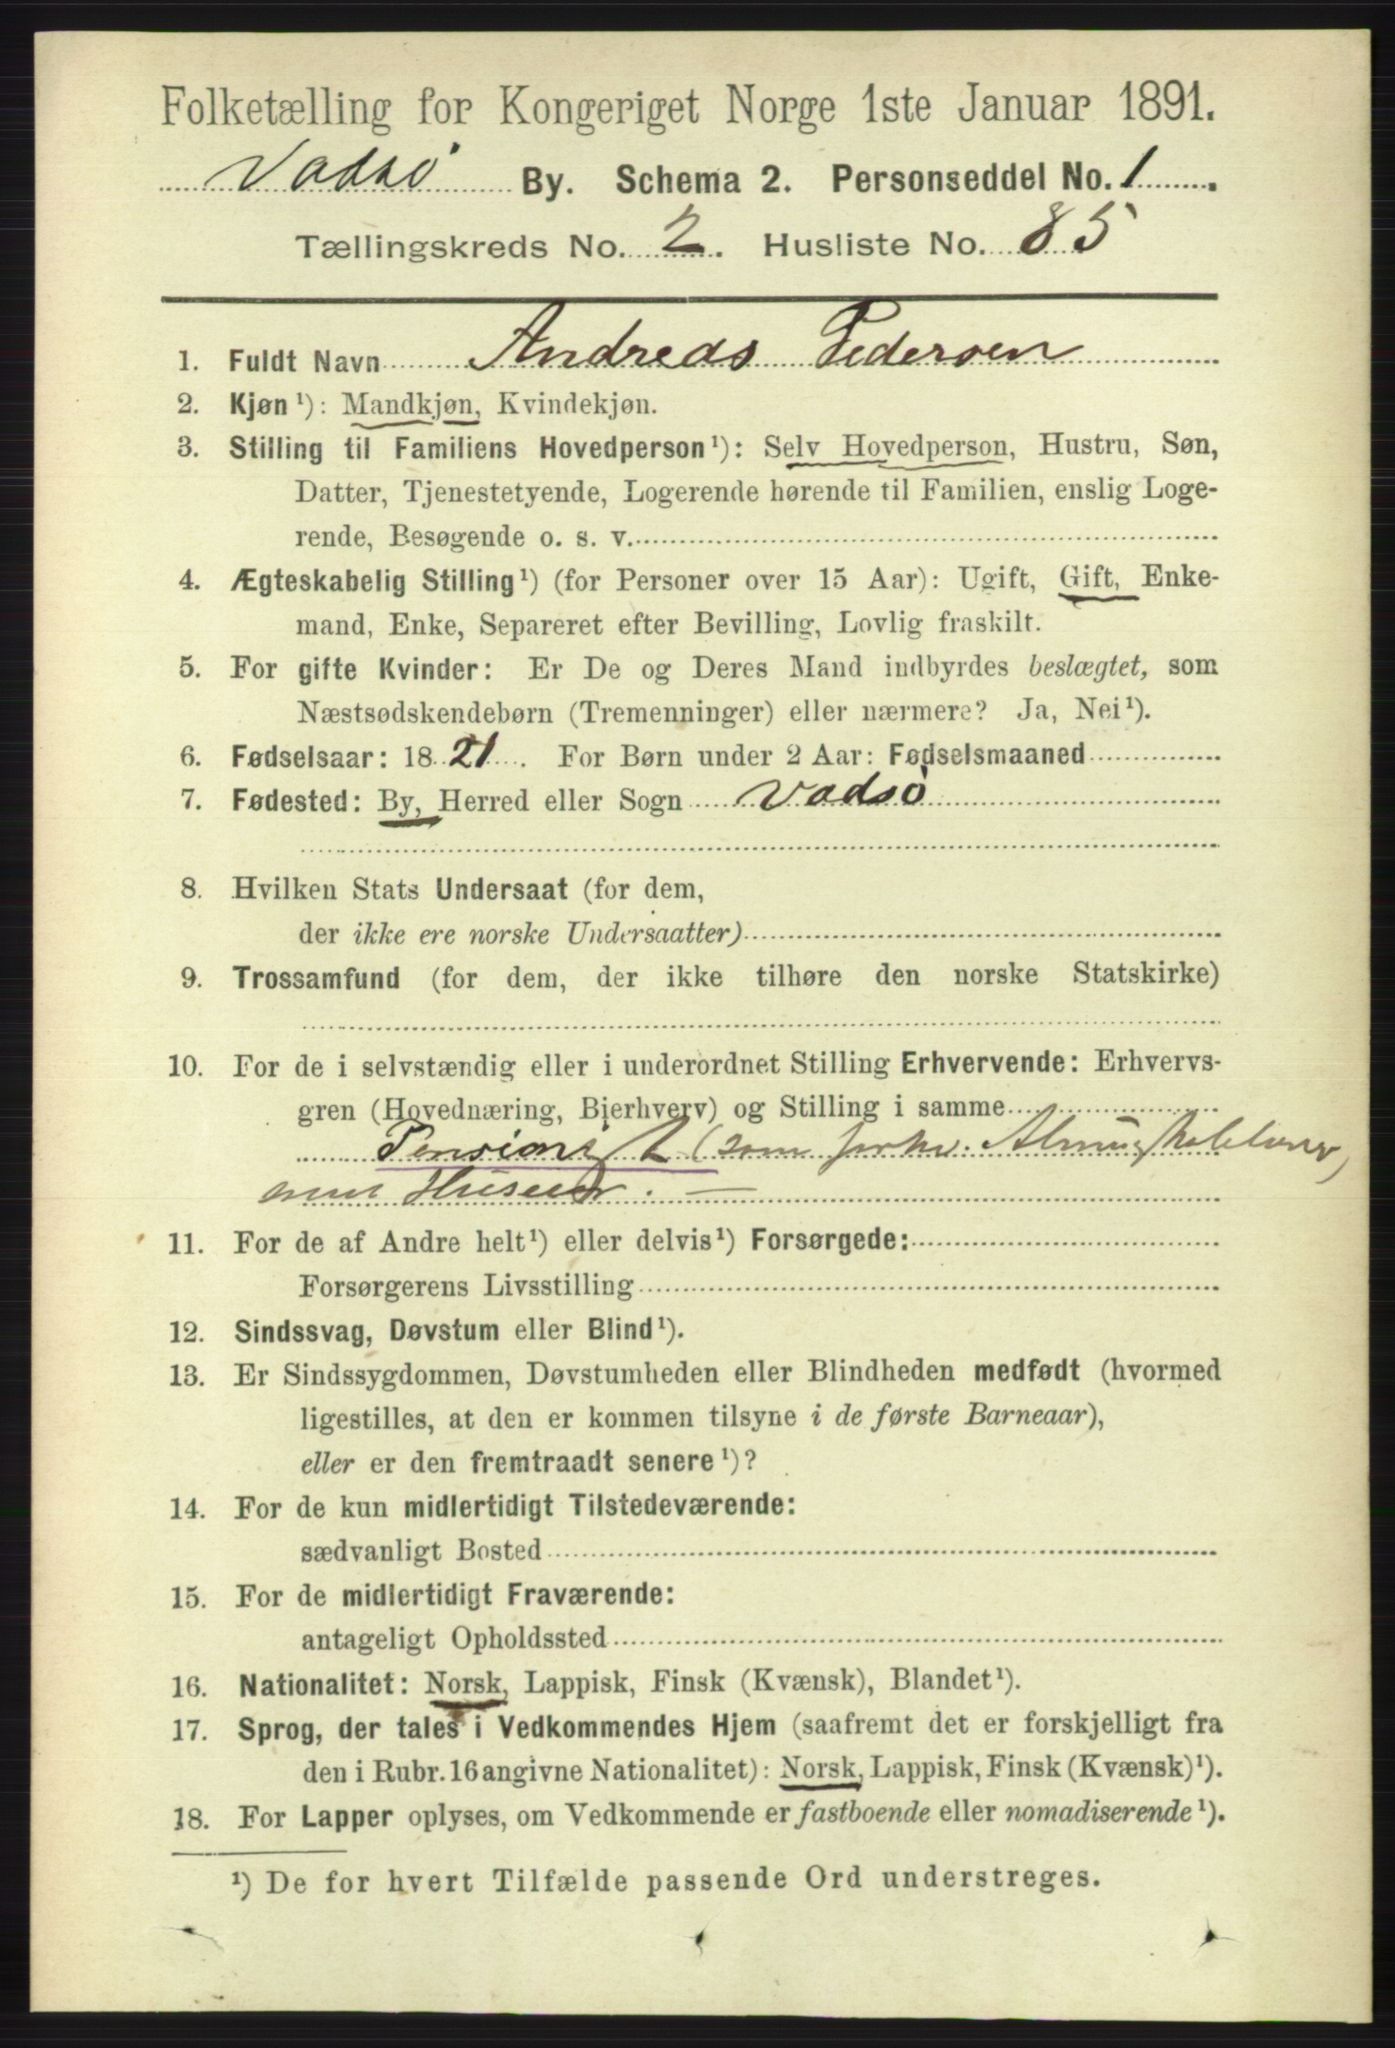 Folketælling for Kongeriget Norge 1ste Januar 1891.
Vadsø By. Schema 2. Personseddel No. 1.
Tællingskreds No. 2. Husliste No. 85
1. Fuldt Navn Andreas Pedersen
2. Kjøn ¹): Mandkjøn, Kvindekjøn.
3. Stilling til Familiens Hovedperson ¹): Selv Hovedperson, Hustru, Søn,
Datter, Tjenestetyende, Logerende hørende til Familien, enslig Loge-
rende, Besøgende o. s. v.
4. Ægteskabelig Stilling ¹) (for Personer over 15 Aar): Ugift, Gift, Enke-
mand, Enke, Separeret efter Bevilling, Lovlig fraskilt.
5. For gifte Kvinder: Er De og Deres Mand indbyrdes beslægtet, som
Næstsødskendebørn (Tremenninger) eller nærmere? Ja, Nei ¹).
6. Fødselsaar: 1821. For Børn under 2 Aar: Fødselsmaaned
7. Fødested: By, Herred eller Sogn Vadsø
8. Hvilken Stats Undersaat (for dem,
der ikke ere norske Undersaatter)
9. Trossamfund (for dem, der ikke tilhøre den norske Statskirke)
10. For de i selvstændig eller i underordnet Stilling Erhvervende: Erhvervs-
gren (Hovednæring, Bierhverv) og Stilling i samme
Pensionist (som
Huseier.
11. For de af Andre helt ¹) eller delvis ¹) Forsørgede:
Forsørgerens Livsstilling
12. Sindssvag, Døvstum eller Blind ¹).
13. Er Sindssygdommen, Døvstumheden eller Blindheden medfødt (hvormed
ligestilles, at den er kommen tilsyne i de første Barneaar),
eller er den fremtraadt senere ¹)?
14. For de kun midlertidigt Tilstedeværende:
sædvanligt Bosted
15. For de midlertidigt Fraværende:
antageligt Opholdssted
16. Nationalitet: Norsk, Lappisk, Finsk (Kvænsk), Blandet ¹).
17. Sprog, der tales i Vedkommendes Hjem (saafremt det er forskjelligt fra
den i Rubr. 16 angivne Nationalitet): Norsk, Lappisk, Finsk (Kvænsk) ¹).
18. For Lapper oplyses, om Vedkommende er fastboende eller nomadiserende ¹).
¹) De for hvert Tilfælde passende Ord understreges.